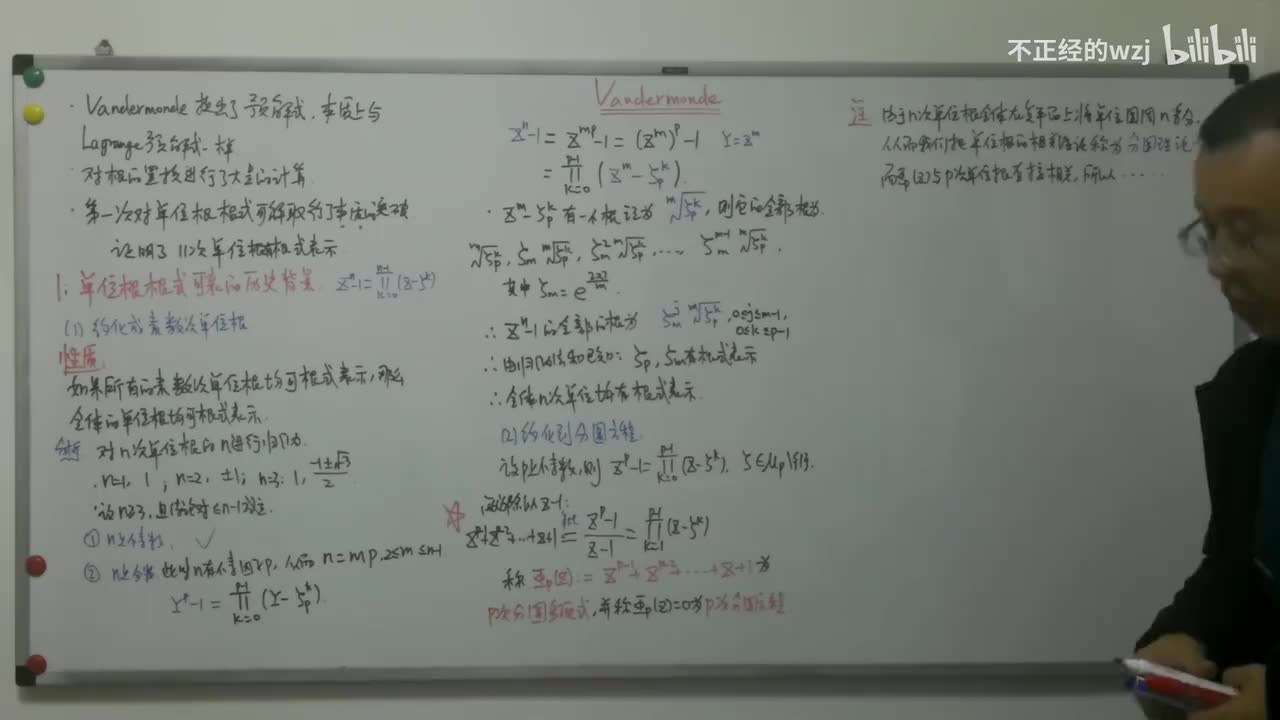 不正经的wzj bilibili
Vandermonde
· Vandermonde 提出了预解式,本质上与
Lagrange预解式一样
· 对根的置换进行了大量的计算.
· 第一次对单位根根式可解取得了本质的突破
证明了 11次单位根有根式表示
1. 单位根根式可解的历史背景. Z^n-1=∏_{k=0}^{n-1}(Z-ζ^k)
(1) 约化成素数次单位根
性质
如果所有的素数次单位根均可根式表示,那么
全体的单位根均可根式表示.
分析 对n次单位根的n进行归纳.
· n=1, 1 ; n=2, ±1; n=3: 1, (-1±√3)/2
· 设n≥3,且结论对≤n-1成立.
① n为素数. ✓
② n为合数 此时n有个素因子p,从而 n=mp, 2≤m≤n-1
Y^p-1=∏_{k=0}^{p-1}(Y-ζ_p^k).
Z^n-1=Z^{mp}-1=(Z^m)^p-1 Y=Z^m
=∏_{k=0}^{p-1}(Z^m-ζ_p^k).
· Z^m-ζ_p^k 有一个根记为 ᵐ√ζ_p^k, 则它的全部根为
ᵐ√ζ_p^k, ζ_m ᵐ√ζ_p^k, ζ_m^2 ᵐ√ζ_p^k, ..., ζ_m^{m-1} ᵐ√ζ_p^k.
∴ Z^n-1的全部的根为 ζ_m^j ᵐ√ζ_p^k, 0≤j≤m-1,
0≤k≤p-1
∴ 由归纳法知已知: ζ_p, ζ_m有根式表示
∴ 全体n次单位均有根式表示.
(2) 约化到分圆方程.
设p为素数,则 Z^p-1=∏_{k=0}^{p-1}(Z-ζ^k). ζ∈μ_p\{1}.
☆ 两边除以Z-1:
Z^{p-1}+Z^{p-2}+...+Z+1=(Z^p-1)/(Z-1)=∏_{k=1}^{p-1}(Z-ζ^k)
称 Φ_p(Z):=Z^{p-1}+Z^{p-2}+...+Z+1为
p次分圆多项式,并称Φ_p(Z)=0为p次分圆方程
注 由于n次单位根全体在复平面上将单位圆周n等分,
从而我们把单位根的相关理论称为分圆理论
而Φ_p(Z)与p次单位根直接相关,所以······